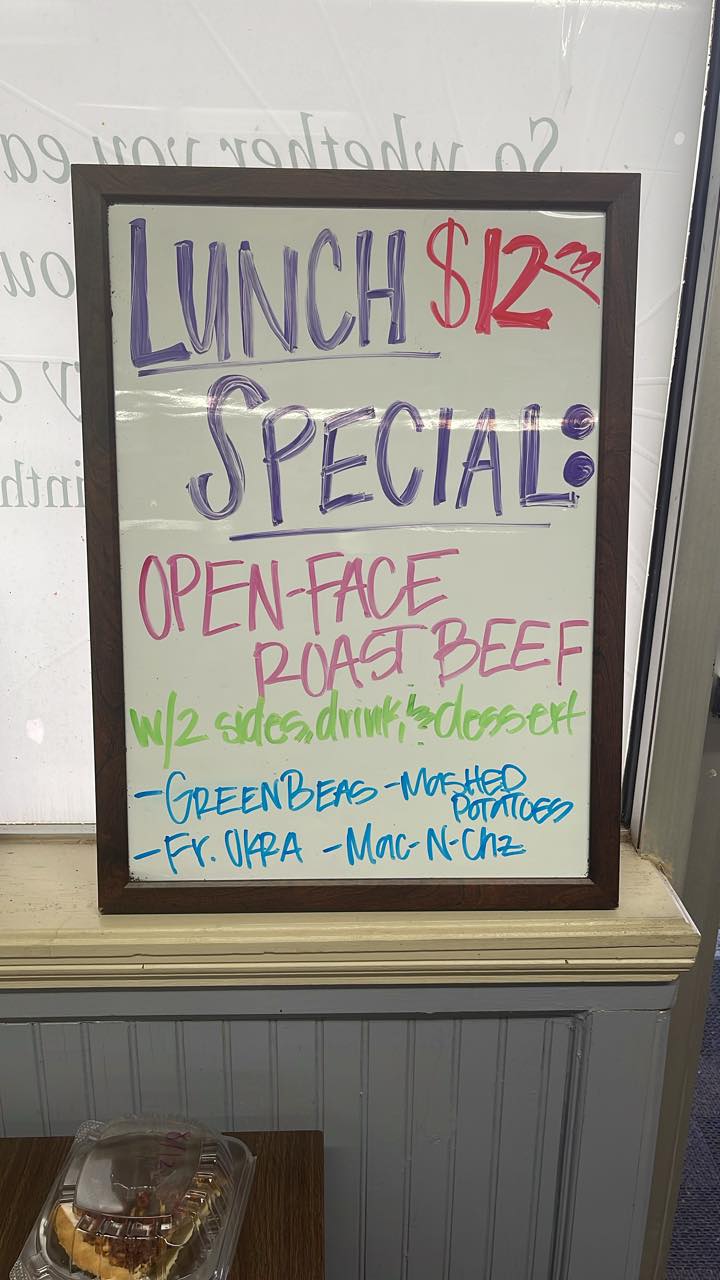 So whether you ea
LUNCH $12.99
SPECIAL:
OPEN-FACE
ROAST BEEF
W/2 sides, drink, & dessert
-GREEN BEAS -MASHED
POTATOES
-Fr. OKRA -Mac-N-Chz